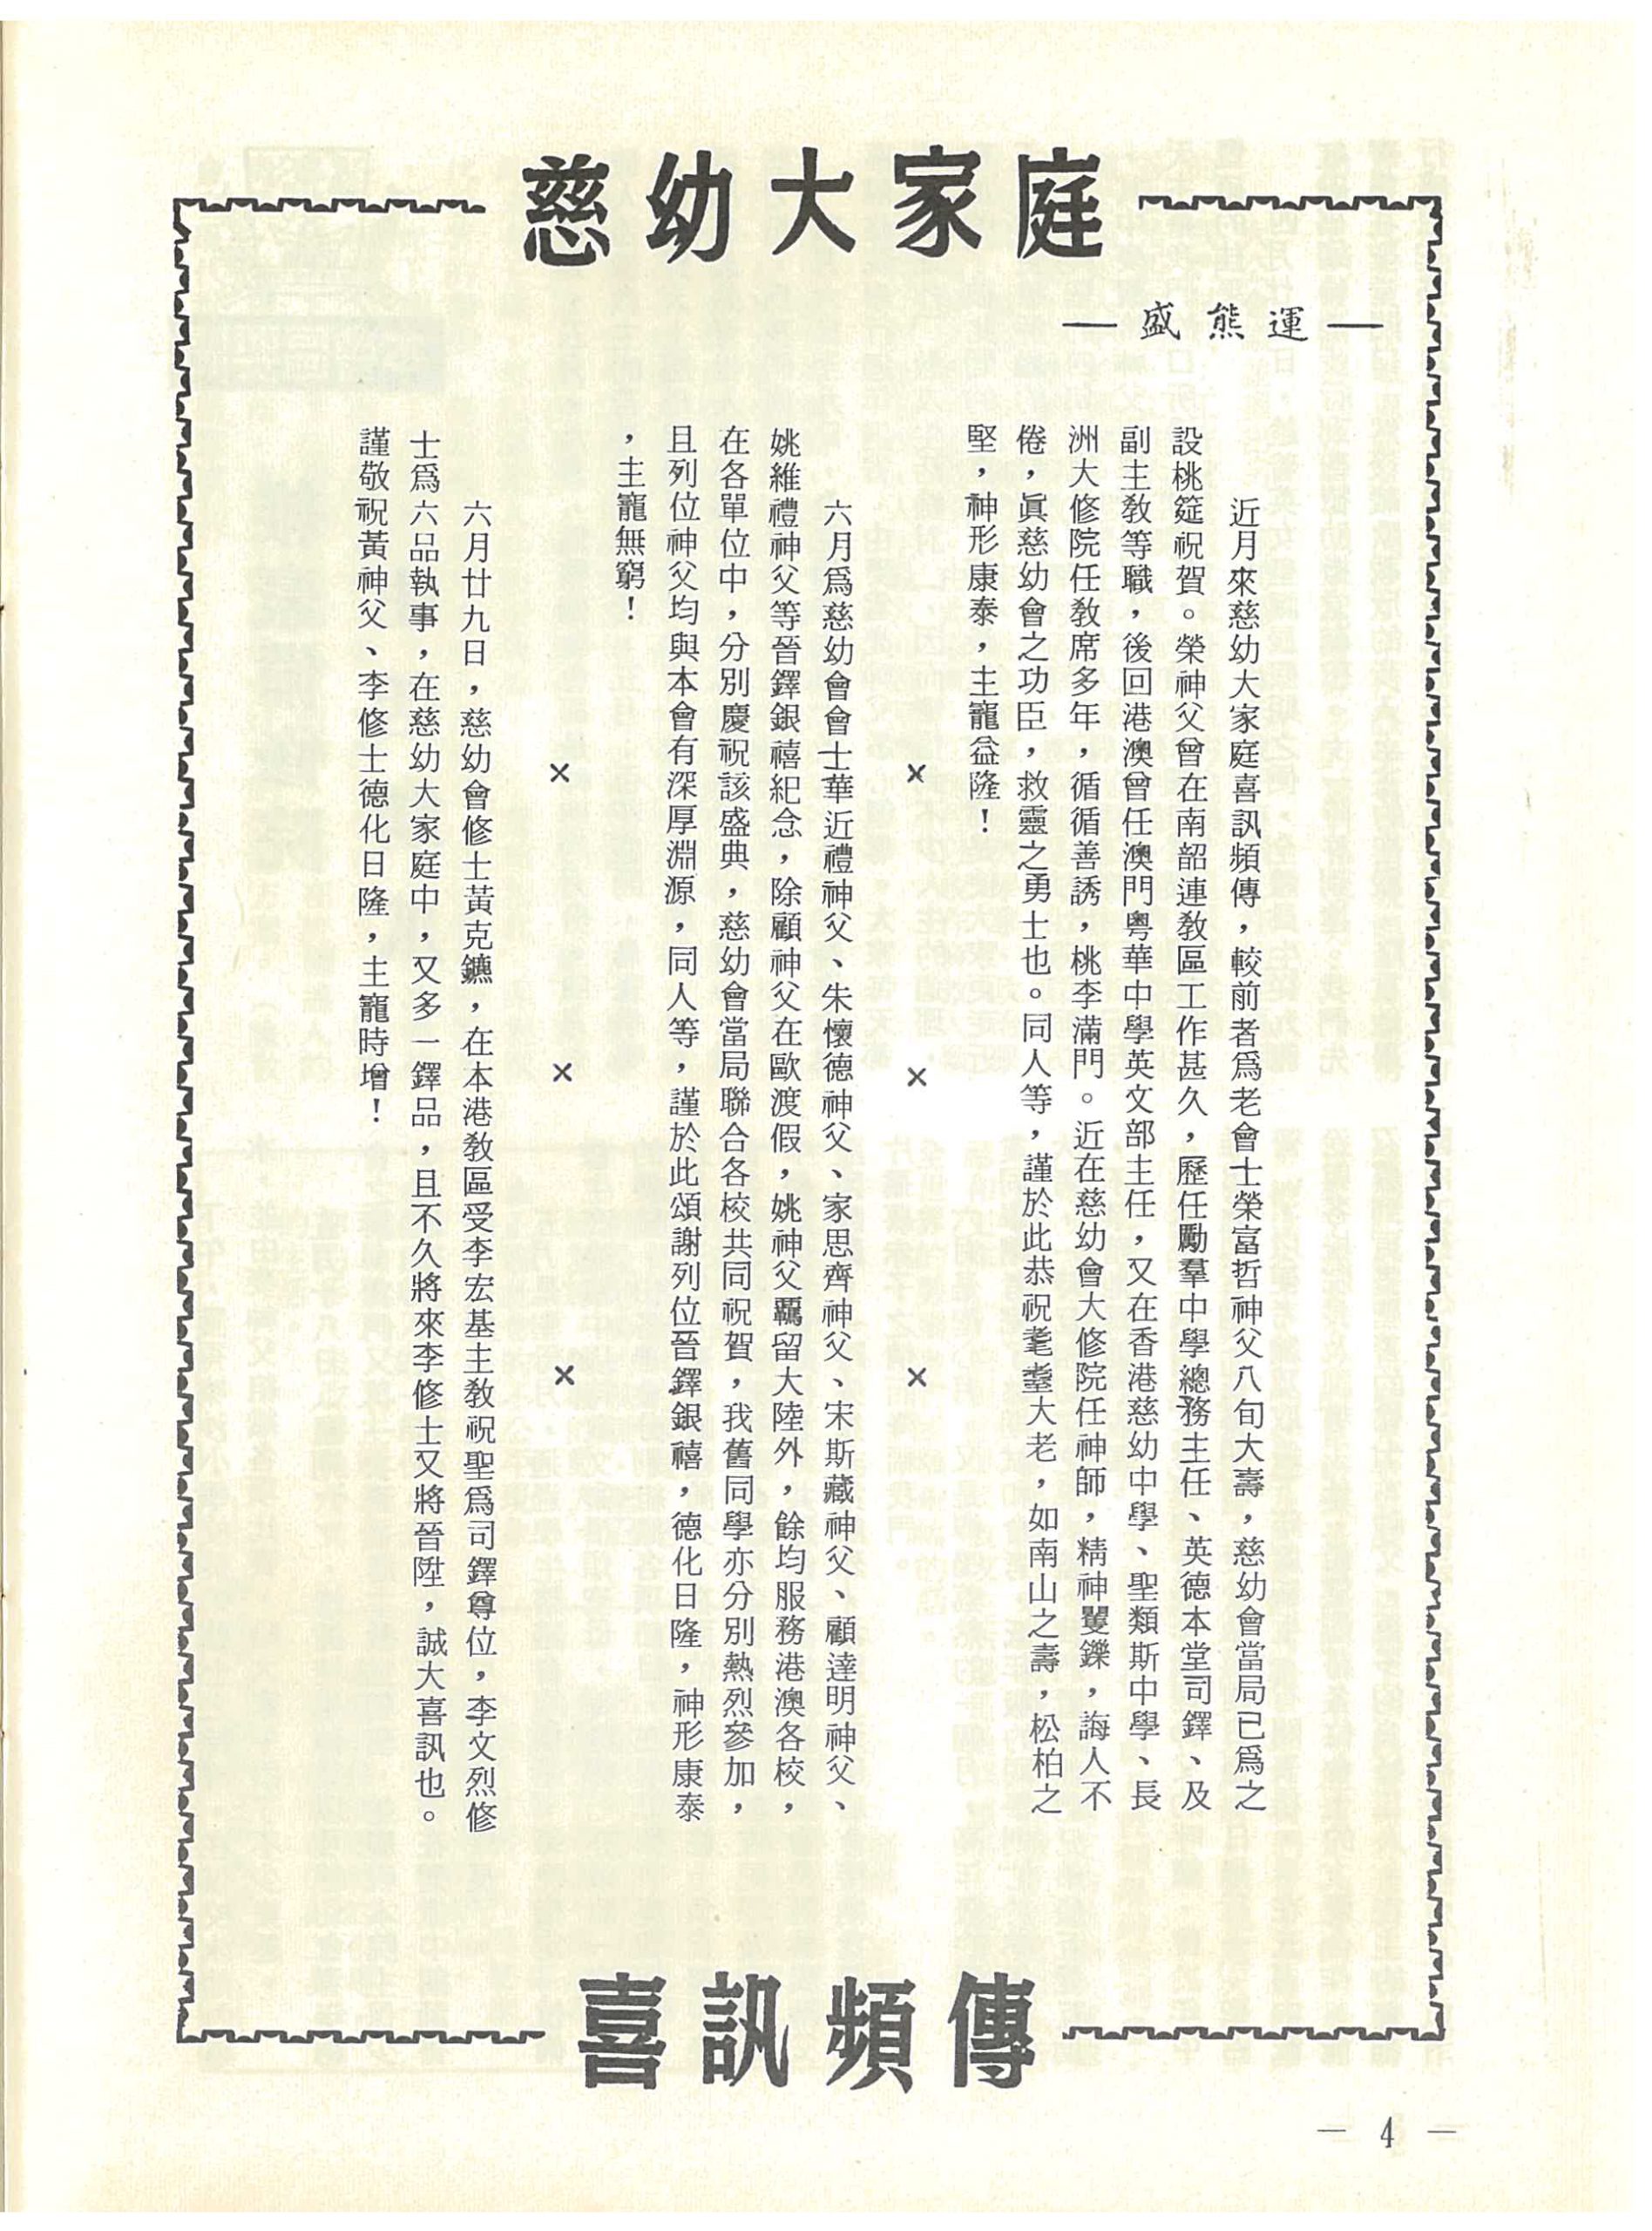 慈幼大家庭
— 盛熊運 —
近月來慈幼大家庭喜訊頻傳，較前者爲老會士榮富哲神父八旬大壽，慈幼會當局已爲之
設桃筵祝賀。榮神父曾在南韶連敎區工作甚久，歷任勵羣中學總務主任、英德本堂司鐸、及
副主敎等職，後回港澳曾任澳門粵華中學英文部主任，又在香港慈幼中學、聖類斯中學、長
洲大修院任敎席多年，循循善誘，桃李滿門。近在慈幼會大修院任神師，精神矍鑠，誨人不
倦，眞慈幼會之功臣，救靈之勇士也。同人等，謹於此恭祝耄耋大老，如南山之壽，松柏之
堅，神形康泰，主寵益隆！
× × ×
六月爲慈幼會會士華近禮神父、朱懷德神父、家思齊神父、宋斯藏神父、顧達明神父、
姚維禮神父等晉鐸銀禧紀念，除顧神父在歐渡假，姚神父羈留大陸外，餘均服務港澳各校，
在各單位中，分別慶祝該盛典，慈幼會當局聯合各校共同祝賀，我舊同學亦分別熱烈參加，
且列位神父均與本會有深厚淵源，同人等，謹於此頌謝列位晉鐸銀禧，德化日隆，神形康泰
，主寵無窮！
× × ×
六月廿九日，慈幼會修士黃克鑣，在本港敎區受李宏基主敎祝聖爲司鐸尊位，李文烈修
士爲六品執事，在慈幼大家庭中，又多一鐸品，且不久將來李修士又將晉陞，誠大喜訊也。
謹敬祝黃神父、李修士德化日隆，主寵時增！
喜訊頻傳
— 4 —